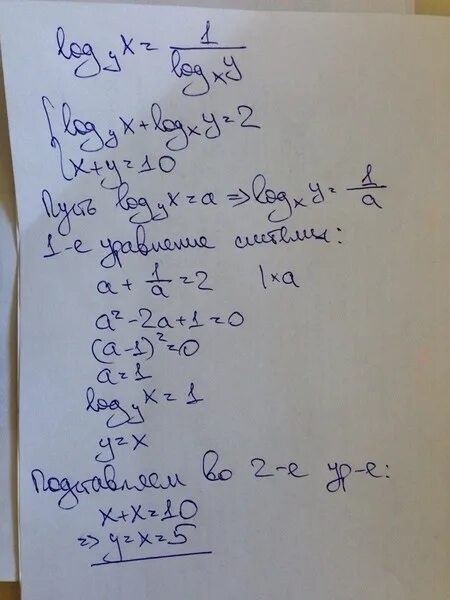 log_y x = 1/log_x y
{ log_y x + log_x y = 2
x + y = 10
Пусть log_y x = a ⇒ log_x y = 1/a
1-е уравнение системы:
a + 1/a = 2 | × a
a² - 2a + 1 = 0
(a - 1)² = 0
a = 1
log_y x = 1
y = x
Подставляем во 2-е ур-е:
x + x = 10
⇒ y = x = 5